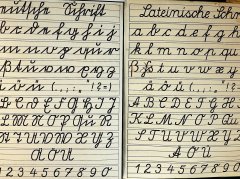 eutsche Schrift
b c d e f g h i j
l m n o p qu r
ß t u v w x y z
ä ö ü
B C D E F G H I J
L M N O P Qu R
S T U V W X Y Z
Ä Ö Ü
1 2 3 4 5 6 7 8 9 0
Lateinische Schri
a b c d e f g h
k l m n o p qu
ß s t u v w x y
ä ö ü
A B C D E F G H I
K L M N O P Qu
S T U V W X Y Z
Ä Ö Ü
1 2 3 4 5 6 7 8 9 0